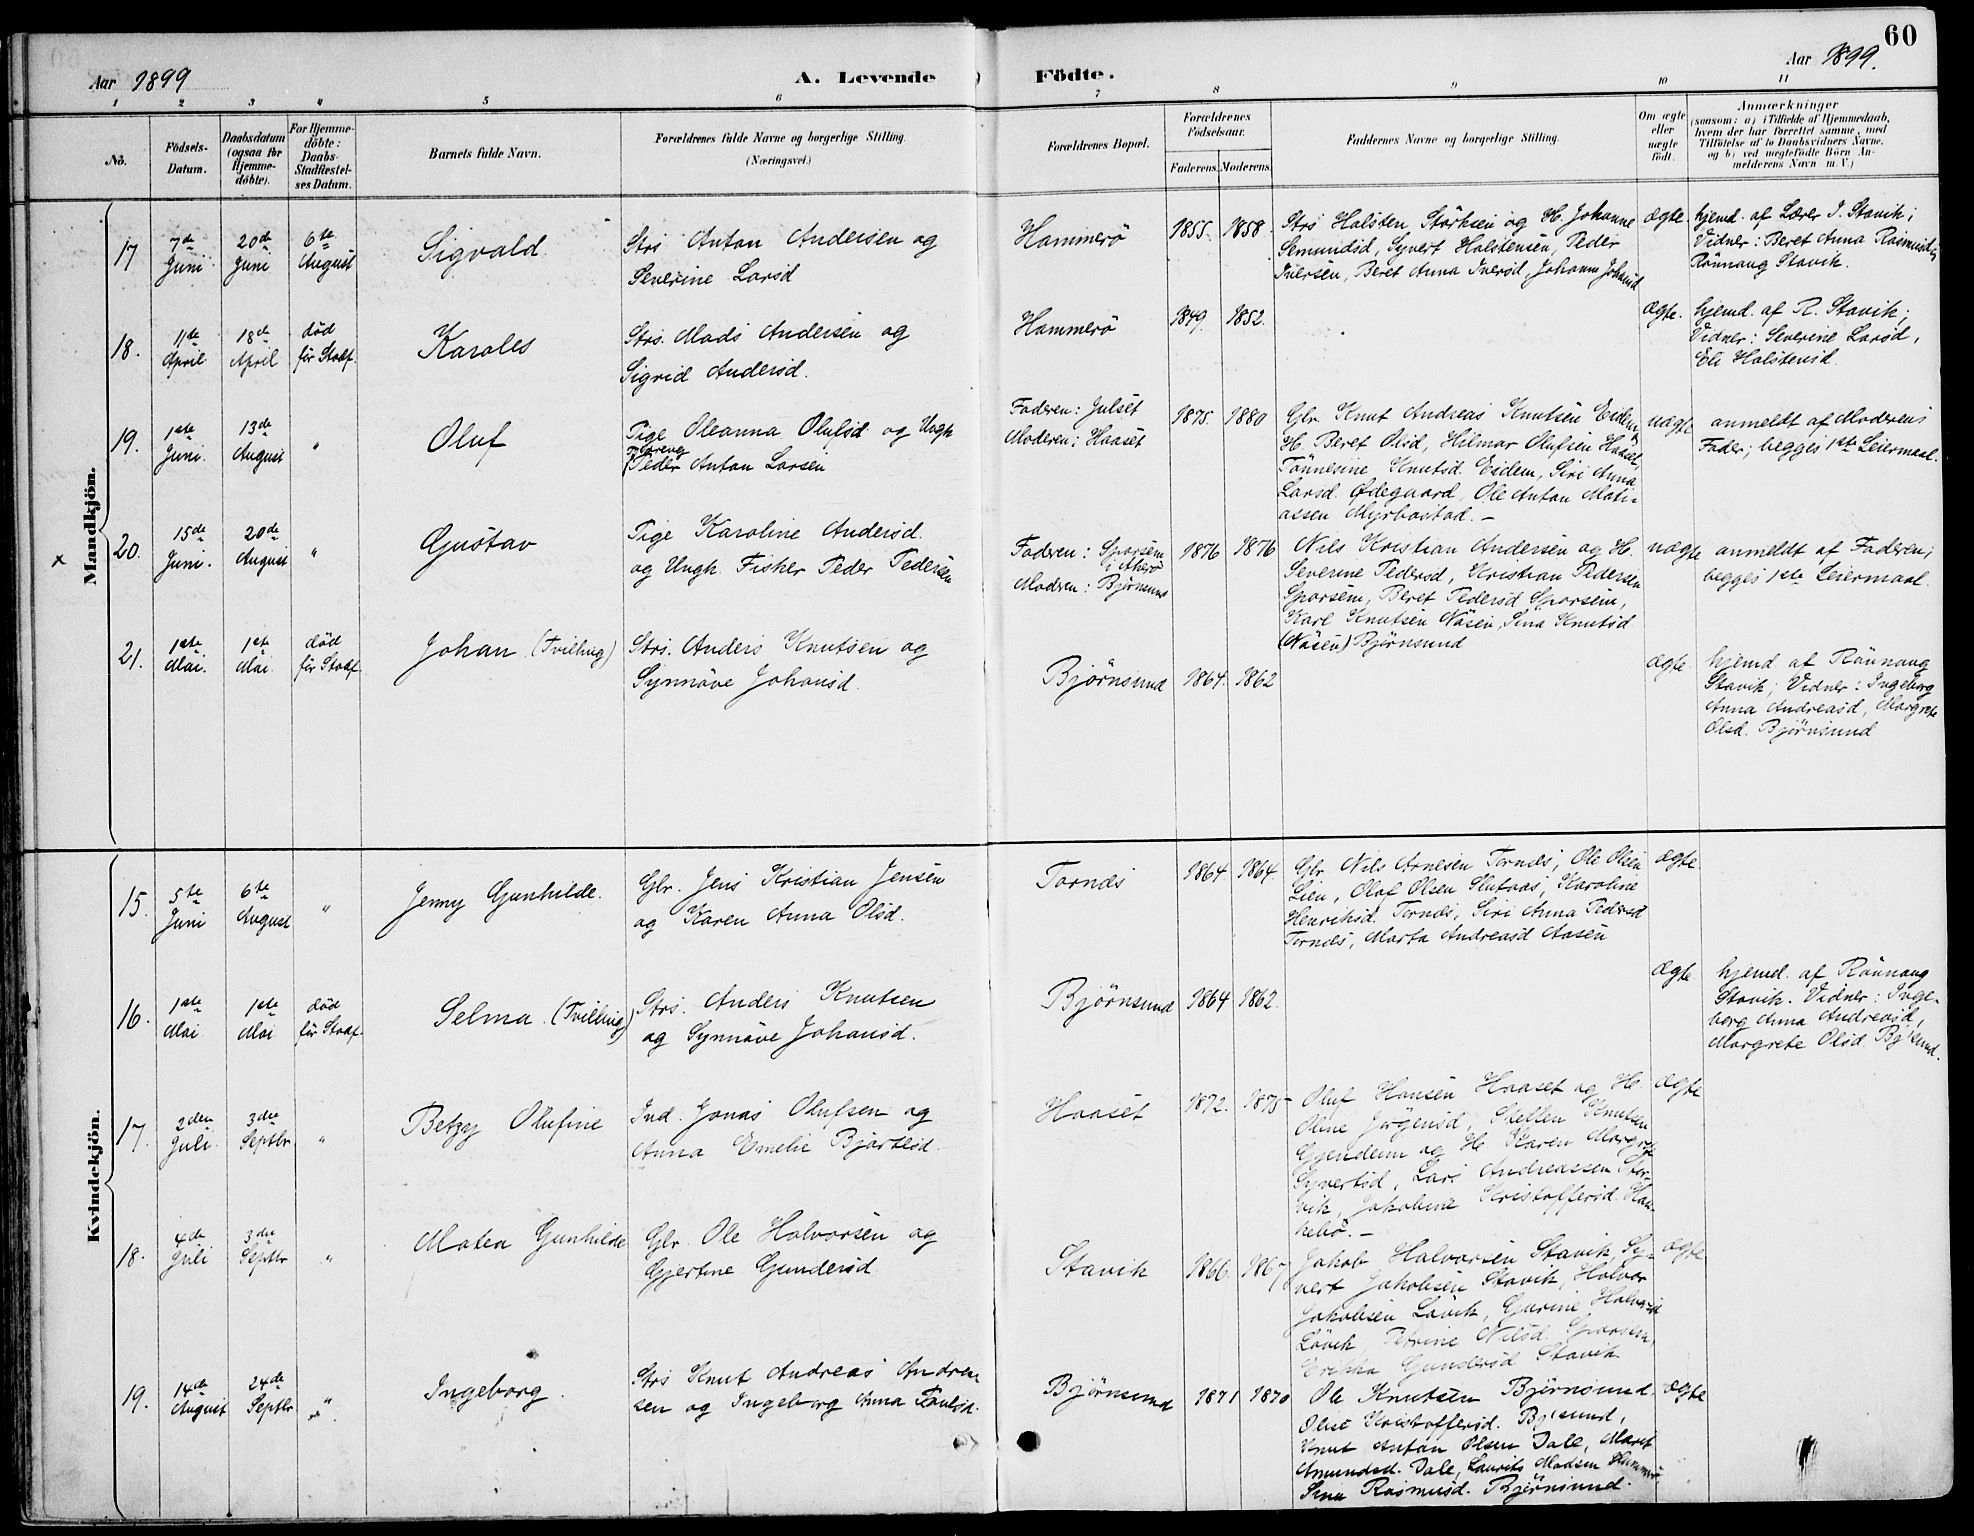 60
Aar 1899
A. Levende
Födte.
Aar 1899.
1 2 3 4 5 6 7 8 9 10 11
No.
Födsels-
Datum.
Daabsdatum
(ogsaa for
Hjemme-
döbte).
For Hjemme-
döbte:
Daabs-
Stadfæstel-
ses Datum.
Barnets fulde Navn.
Forældrenes fulde Navne og borgerlige Stilling.
(Næringsvei.)
Forældrenes Bopæl.
Forældrenes
Födselsaar.
Faderens. Moderens.
Faddernes Navne og borgerlige Stilling.
Om ægte
eller
uægte
födt.
Anmærkninger
(saasom: a) i Tilfælde af Hjemmedaab,
hvem der har forrettet samme, med
Tilföielse af to Daabsvidners Navne.
og b) ved uegtefödte Börn An-
melderens Navn m. V.)
Mandkjön.
17
7de
Juni
20de
Juni
6te
August
Sigvald
Strs Anton Andersen og
Severine Larsd
Hammerö
1855. 1858.
Strs Halsten Störksen og H. Johanne
Semundsd, Syvert Halstensen, Peder
Iversen, Beret Anna Iversd, Johanna Johansd
ægte.
hjemd. af Lærer J. Stavik;
Vidner: Beret Anna Rasmusd,
Rönnaug Stavik.
18.
11te
April
18de
April
död
för Stadf.
Karoles
Strs. Mads Andersen og
Sigrid Andersd.
Hammerö
1849. 1852.
ægte.
hjemd. af R. Stavik;
Vidner: Severine Larsd,
Eli Halstensd.
19.
1ste
Juni.
13de
August
"
Oluf
Pige Oleanna Olufsd og Ungk
Peder Anton Larsen
Faderen: Julset
Moderen: Haaset
1875. 1880
Gbr. Knut Andreas Knutsen Eidem
H. Beret Olsd, Hilmar Olufsen Haaset,
Tönnesine Knutsd. Eidem, Siri Anna
Larsd. Ødegaard, Ole Anton Mati-
assen Myrbostad. –
uægte
anmeldt af Moderens
Fader; begges 1ste Leiermaal.
x
20.
15de
Juni.
20de
August
"
Gustav
Pige Karoline Andersd.
og Ungk. Fisker Peder Pedersen
Faderen: Sporsem
i Akerö
Moderen: Björnsund
1876 1876
Nils Kristian Andersen og H.
Severine Pedersd, Kristian Pedersen
Sporsem, Beret Pedersd Sporsem,
Karl Knutsen Näsen, Sina Knutsd
(Näsen) Björnsund
uægte
anmeldt af Faderen;
begges 1ste Leiermaal.
21.
1ste
Mai.
1ste
Mai
död
för Stadf.
Johan. (Tvilling)
Strs. Anders Knutsen og
Synnöve Johansd.
Björnsund
1864. 1862
ægte.
hjemd af Rönnaug
Stavik; Vidner: Ingeborg
Anna Andreasd, Margrete
Olsd. Björnsund
Kvindekjön.
15.
5te
Juni
6te
August
"
Jenny Gunhilde.
Gbr. Jens Kristian Jensen
og Karen Anna Olsd.
Tornes
1864. 1864.
Gbr. Nils Arnesen Tornes, Ole Olsen
Lien, Olaf Olsen Slutaas, Karoline
Henriksd. Tornes, Siri Anna Pedersd
Tornes, Marta Andreasd Aasen
ægte.
16.
1ste
Mai
1ste
Mai
död
för Stadf.
Selma. (Tvilling)
Strs. Anders Knutsen
og Synnöve Johansd.
Björnsund
1864 1862.
ægte.
hjemd. af Rönnaug
Stavik. Vidner: Inge-
borg Anna Andreasd,
Margrete Olsd. Bj'sund.
17.
2den
Juli
3die
Septbr.
"
Betzy Olufine
Ind. Jonas Olufsen og
Anna Emelie Bjartesd.
Haaset
1872. 1875
Oluf Hansen Haaset og H.
Oline Jörgensd, Steffen Knutsen
Gjendem og H. Karen Margrete
Syvertsd, Lars Andreassen Stor-
vik, Jakobine Kristoffersd. Hau-
kebö. –
ægte
18.
4de
Juli
3die
Septbr
"
Matea Gunhilde
Gbr. Ole Halvorsen og
Gjertine Gundersd
Stavik
1866. 1867
Jakob Halvorsen Stavik, Sy-
vert Jakobsen Stavik, Halvor
Jakobsen Lövik, Gurine Halvorsd
Lövik, Petrine Nilsd. Sporsem,
Erikka Gundersd Stavik
ægte
19.
14de
August
24de
Septbr.
"
Ingeborg.
Strs Knut Andreas Andrea
sen og Ingeborg Anna Paulsd.
Björnsund
1871 1870
Ole Knutsen Björnsund.
Oline Kristoffersd. Bj'sund,
Knut Anton Olsen Dale, Marit
Amundsd. Dale, Laurits Madsen Hammerö
Sina Rasmusd. Björnsund.
ægte